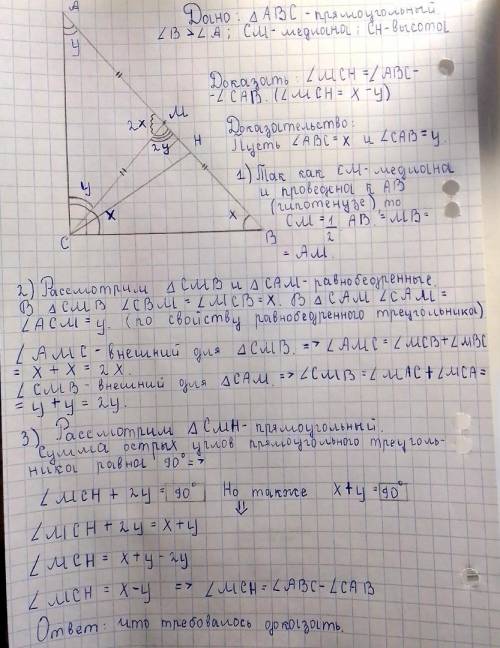 A
y
2x
M
H
2y
y
x
x
C
B
Дано: △ABC - прямоугольный
∠B > ∠A; CM-медиана; CH-высота
Доказать: ∠MCH = ∠ABC-
-∠CAB. (∠MCH = x-y)
Доказательство:
Пусть ∠ABC = x и ∠CAB = y.
1) Так как CM-медиана
и проведена к AB
(гипотенузе), то
CM = 1/2 AB = MB =
= AM.
2) Рассмотрим △CMB и △CAM - равнобедренные.
В △CMB ∠CBM = ∠MCB = x. В △CAM ∠CAM =
∠ACM = y. (по свойству равнобедренного треугольника)
∠AMC - внешний для △CMB. => ∠AMC = ∠MCB + ∠MBC
= x + x = 2x.
∠CMB - внешний для △CAM. => ∠CMB = ∠MAC + ∠MCA =
= y + y = 2y.
3) Рассмотрим △CMH - прямоугольный.
Сумма острых углов прямоугольного треуголь-
ника равна 90° =>
∠MCH + 2y = 90° Но также x+y = 90°
⇓
∠MCH + 2y = x+y
∠MCH = x+y-2y
∠MCH = x-y => ∠MCH = ∠ABC - ∠CAB
Ответ: что требовалось доказать.